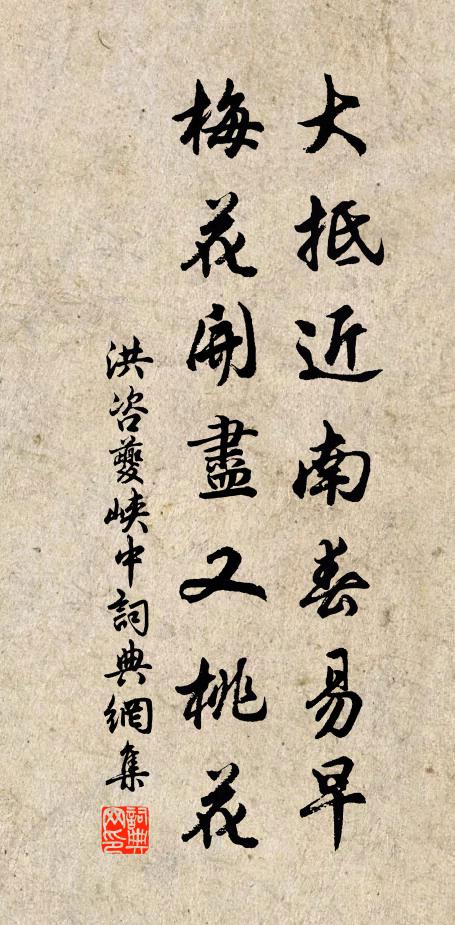 大抵近南春易早
梅花開盡又桃花
洪咨夔峽中詞典網集
詞典網印